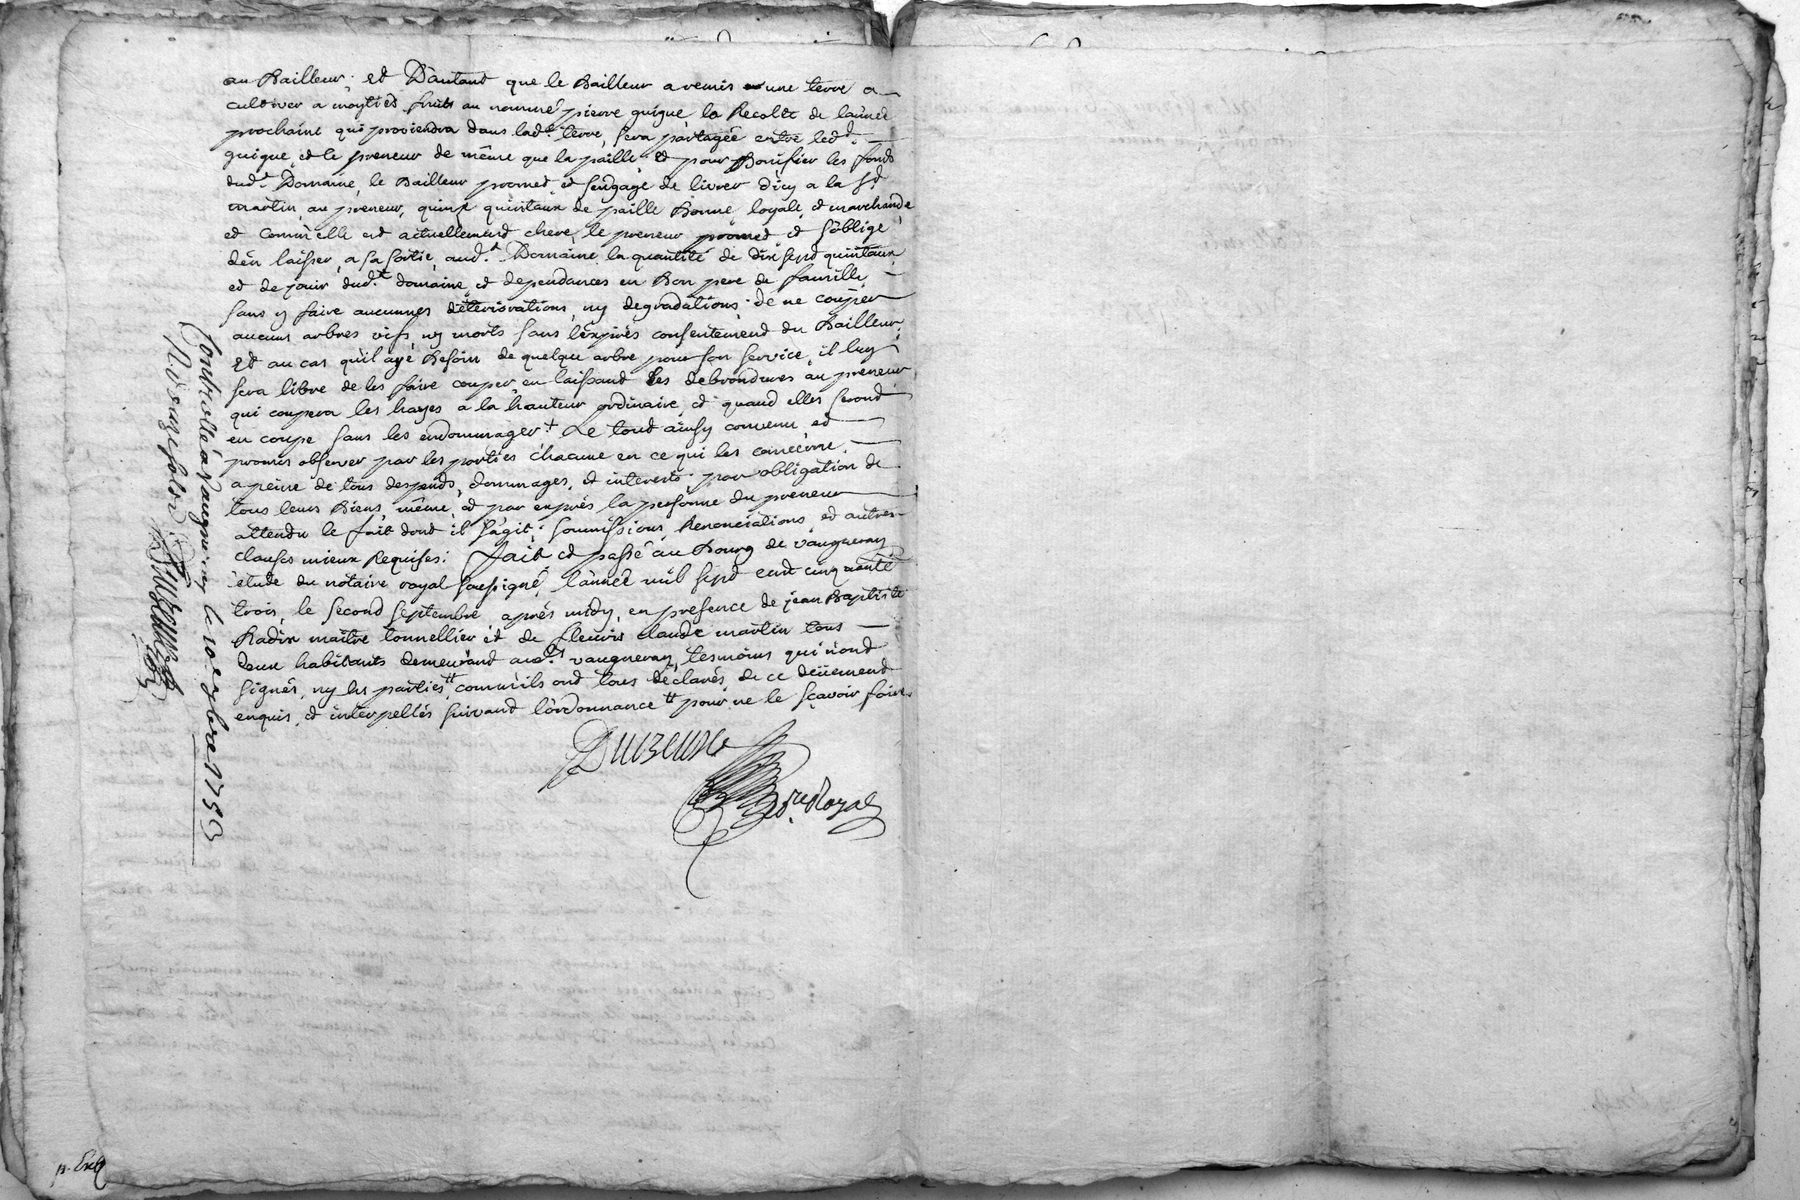 au Bailleur. et D'autant que le Bailleur a remis une terre a
cultiver a moytiés fruits au nommé pierre guigue la Recolte de l'année
prochaine qui proviendra dans lad.e terre, sera partagée entre led.t
guigue, et le preneur de même que la paille. et pour Bonifier les fonds
dud.t Domaine, le Bailleur promet et s'engage de livrer d'icy a la S.t
martin, au preneur, quinze quintaux de paille Bonne, loyale, et marchande
et comm'elle est actuellement chere, le preneur promet et s'oblige
d'en laisser, a sa sortie, aud.t Domaine la quantité de dix sept quintaux,
et de jouir dud.t domaine et dependances en Bon pere de famille,
sans y faire aucunnes déteriorations, ny degradations. de ne couper
aucuns arbres vifs, ny morts sans l'exprés consentement du Bailleur.
et au cas qu'il aye Besoin de quelque arbre pour son service, il luy
sera libre de les faire couper, en laissant les debrondures au preneur
qui coupera les hayes a la hauteur ordinaire, et quand elles seront
en coupe sans les endommager. Le tout ainsy convenu et
promis observer par les parties chacune en ce qui les concerne.
a peine de tous despends, dommages, et interets par obligation de
tous leurs Biens, même, et par exprés la personne du preneur
attendu le fait dont il s'agit; soumissions, Renonciations, et autres
clauses mieux Requises. fait et passé au Bourg de vaugneray
étude du notaire royal soussigné, l'année mil sept cent cinquante
trois, le second septembre, aprés midy, en presence de jean Baptiste
Radix maitre tonnellier et de fleuris claude martin tous
deux habitants demeurant aud.t vaugneray, tesmoins qui n'ont
signés, ny les parties comm'ils ont tous déclarés, de ce deüement
enquis, et interpellés suivant l'ordonnance pour ne le sçavoir faire.
Not.re Royal
Controllé a Vaugneray le 10 e 7bre 1753
R. sols